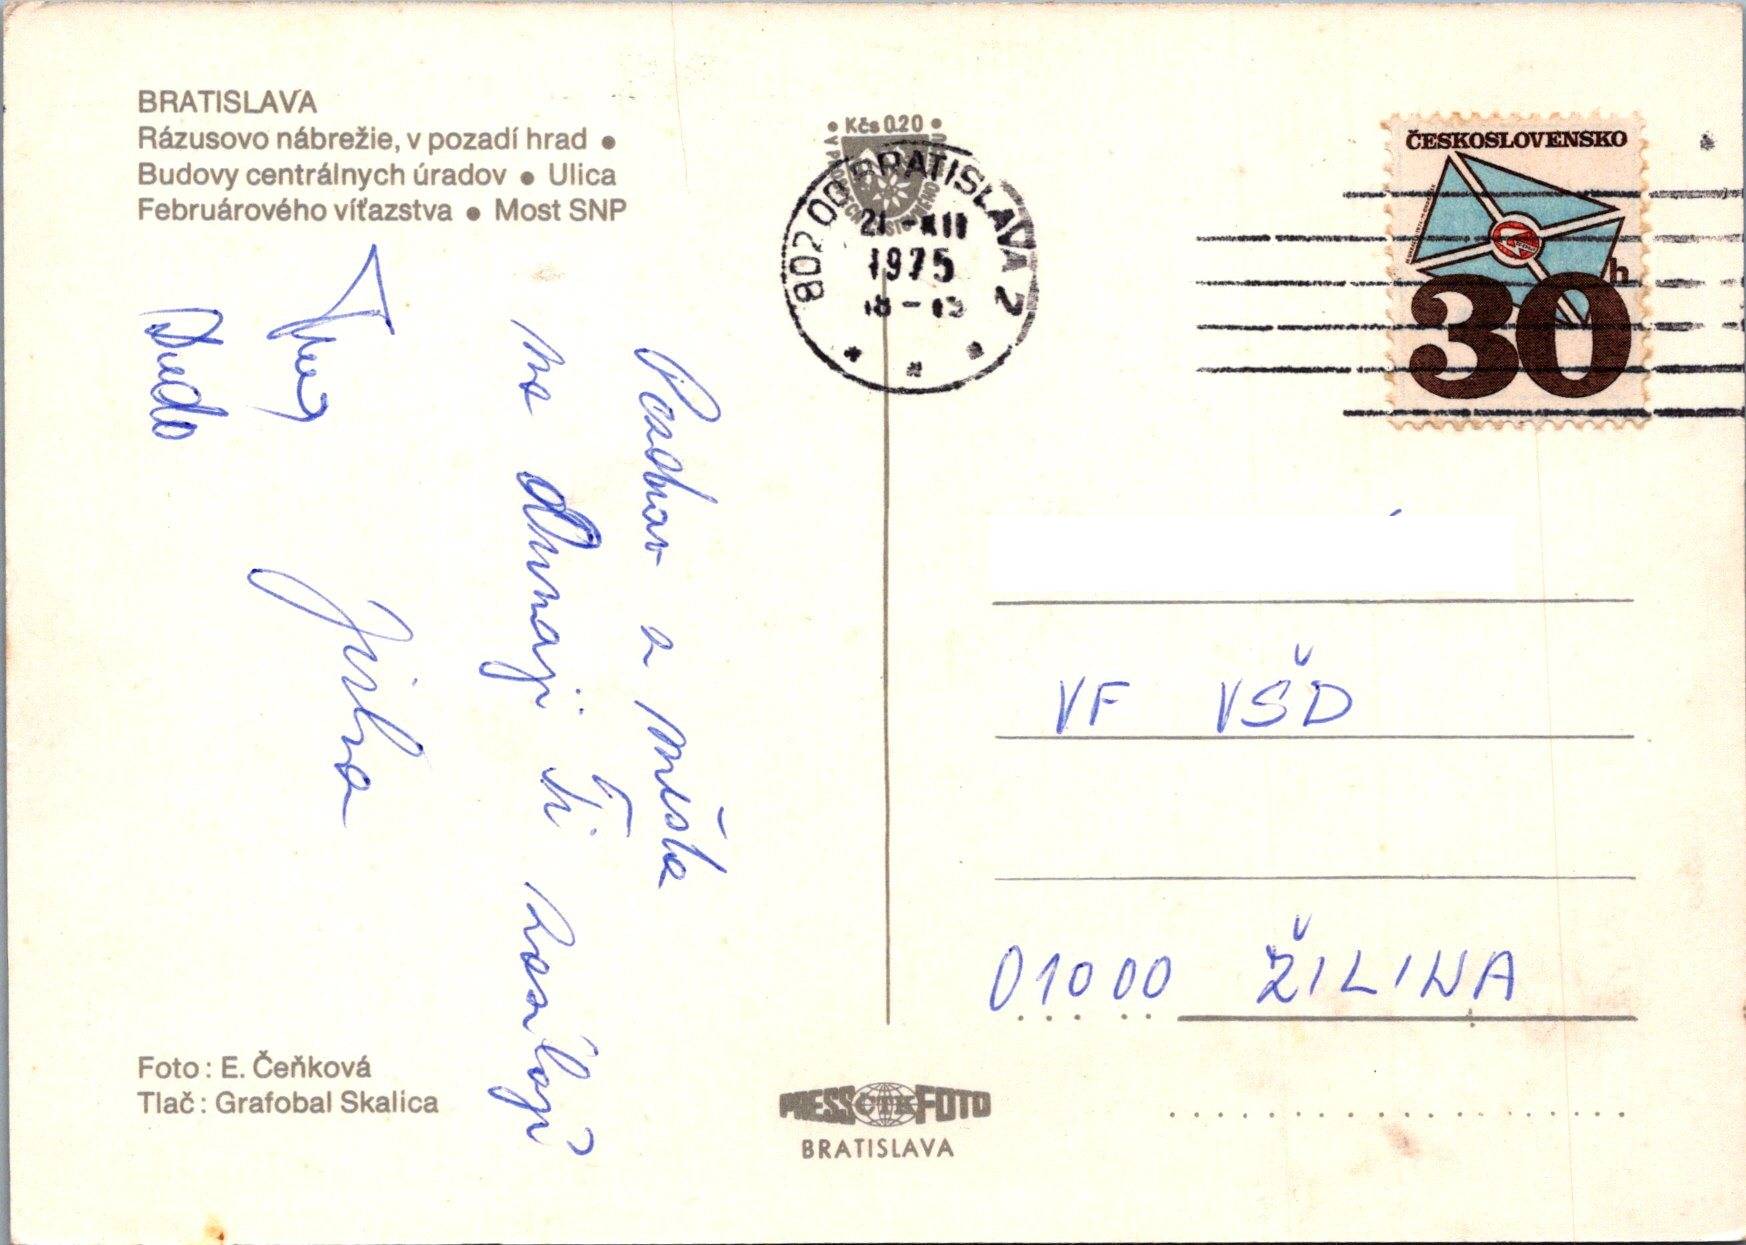 BRATISLAVA
Rázusovo nábrežie, v pozadí hrad •
Budovy centrálnych úradov • Ulica
Februárového víťazstva • Most SNP
• Kčs 0.20 •
802 00 BRATISLAVA 2
21.-XII
1975
18-
ČESKOSLOVENSKO
30
h
Pozdrav z města
na Dunaji Ti zasílají
Jirka
Duda
VF VŠD
01000 ŽILINA
Foto: E. Čeňková
Tlač: Grafobal Skalica
PRESS ČTK FOTO
BRATISLAVA